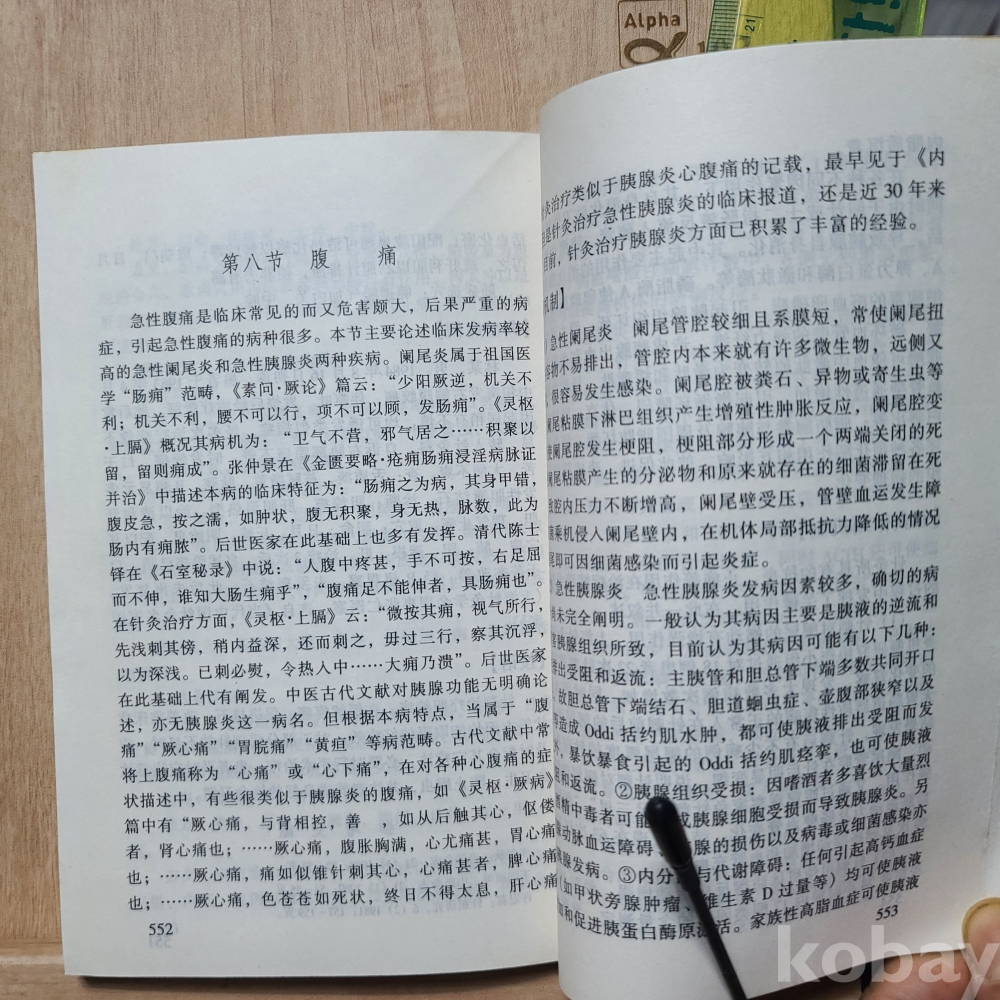 Alpha
21
第八节 腹 痛
急性腹痛是临床常见的而又危害颇大，后果严重的病
症，引起急性腹痛的病种很多。本节主要论述临床发病率较
高的急性阑尾炎和急性胰腺炎两种疾病。阑尾炎属于祖国医
学“肠痈”范畴，《素问·厥论》篇云：“少阳厥逆，机关不
利；机关不利，腰不可以行，项不可以顾，发肠痈”。《灵枢
·上膈》概况其病机为：“卫气不营，邪气居之……积聚以
留，留则痈成”。张仲景在《金匮要略·疮痈肠痈浸淫病脉证
并治》中描述本病的临床特征为：“肠痈之为病，其身甲错，
腹皮急，按之濡，如肿状，腹无积聚，身无热，脉数，此为
肠内有痈脓”。后世医家在此基础上也多有发挥。清代陈士
铎在《石室秘录》中说：“人腹中疼甚，手不可按，右足屈
而不伸，谁知大肠生痈乎”，“腹痛足不能伸者，具肠痈也”。
在针灸治疗方面，《灵枢·上膈》云：“微按其痈，视气所行，
先浅刺其傍，稍内益深，还而刺之，毋过三行，察其沉浮，
以为深浅。已刺必熨，令热入中……大痈乃溃”。后世医家
在此基础上代有阐发。中医古代文献对胰腺功能无明确论
述，亦无胰腺炎这一病名。但根据本病特点，当属于“腹
痛”“厥心痛”“胃脘痛”“黄疸”等病范畴。古代文献中常
将上腹痛称为“心痛”或“心下痛”，在对各种心腹痛的症
状描述中，有些很类似于胰腺炎的腹痛，如《灵枢·厥病》
篇中有“厥心痛，与背相控，善 ，如从后触其心，伛偻
者，肾心痛也；……厥心痛，腹胀胸满，心尤痛甚，胃心痛
也；……厥心痛，痛如似锥针刺其心，心痛甚者，脾心痛
也；……厥心痛，色苍苍如死状，终日不得太息，肝心痛
552
灸治疗类似于胰腺炎心腹痛的记载，最早见于《内
是针灸治疗急性胰腺炎的临床报道，还是近 30 年来
目前，针灸治疗胰腺炎方面已积累了丰富的经验。
机制】
急性阑尾炎 阑尾管腔较细且系膜短，常使阑尾扭
容物不易排出，管腔内本来就有许多微生物，远侧又
，很容易发生感染。阑尾腔被粪石、异物或寄生虫等
尾粘膜下淋巴组织产生增殖性肿胀反应，阑尾腔变
使阑尾腔发生梗阻，梗阻部分形成一个两端关闭的死
尾粘膜产生的分泌物和原来就存在的细菌滞留在死
致腔内压力不断增高，阑尾壁受压，管壁血运发生障
菌乘机侵入阑尾壁内，在机体局部抵抗力降低的情况
尾即可因细菌感染而引起炎症。
急性胰腺炎 急性胰腺炎发病因素较多，确切的病
尚未完全阐明。一般认为其病因主要是胰液的逆流和
害胰腺组织所致，目前认为其病因可能有以下几种：
排出受阻和返流：主胰管和胆总管下端多数共同开口
，故胆总管下端结石、胆道蛔虫症、壶腹部狭窄以及
等造成 Oddi 括约肌水肿，都可使胰液排出受阻而发
外，暴饮暴食引起的 Oddi 括约肌痉挛，也可使胰液
阻和返流。②胰腺组织受损：因嗜酒者多喜饮大量烈
酒精中毒者可能 成胰腺细胞受损而导致胰腺炎。另
动脉血运障碍 腺的损伤以及病毒或细菌感染亦
腺发病。③内分 与代谢障碍：任何引起高钙血症
（如甲状旁腺肿瘤、维生素 D 过量等）均可使胰液
和促进胰蛋白酶原 活。家族性高脂血症可使胰液
553
kobay